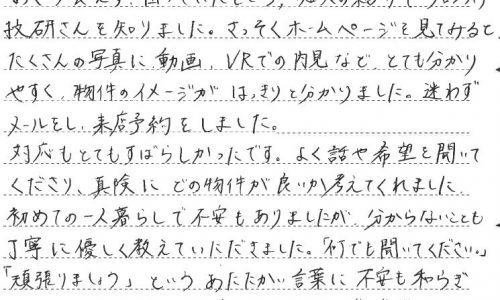 技研さんを知りました。さっそくホームページを見てみると、
たくさんの写真に動画、VRでの内見など、とても分かり
やすく、物件のイメージがはっきりと分かりました。迷わず
メールをし、来店予約をしました。
対応もとてもすばらしかったです。よく話や希望を聞いて
くださり、真険にどの物件が良いか考えてくれました。
初めての一人暮らしで不安もありましたが、分からないことも
丁寧に優しく教えていただきました。「何でも聞いてください。」
「頑張りましょう」というあたたかい言葉に不安も和らぎ